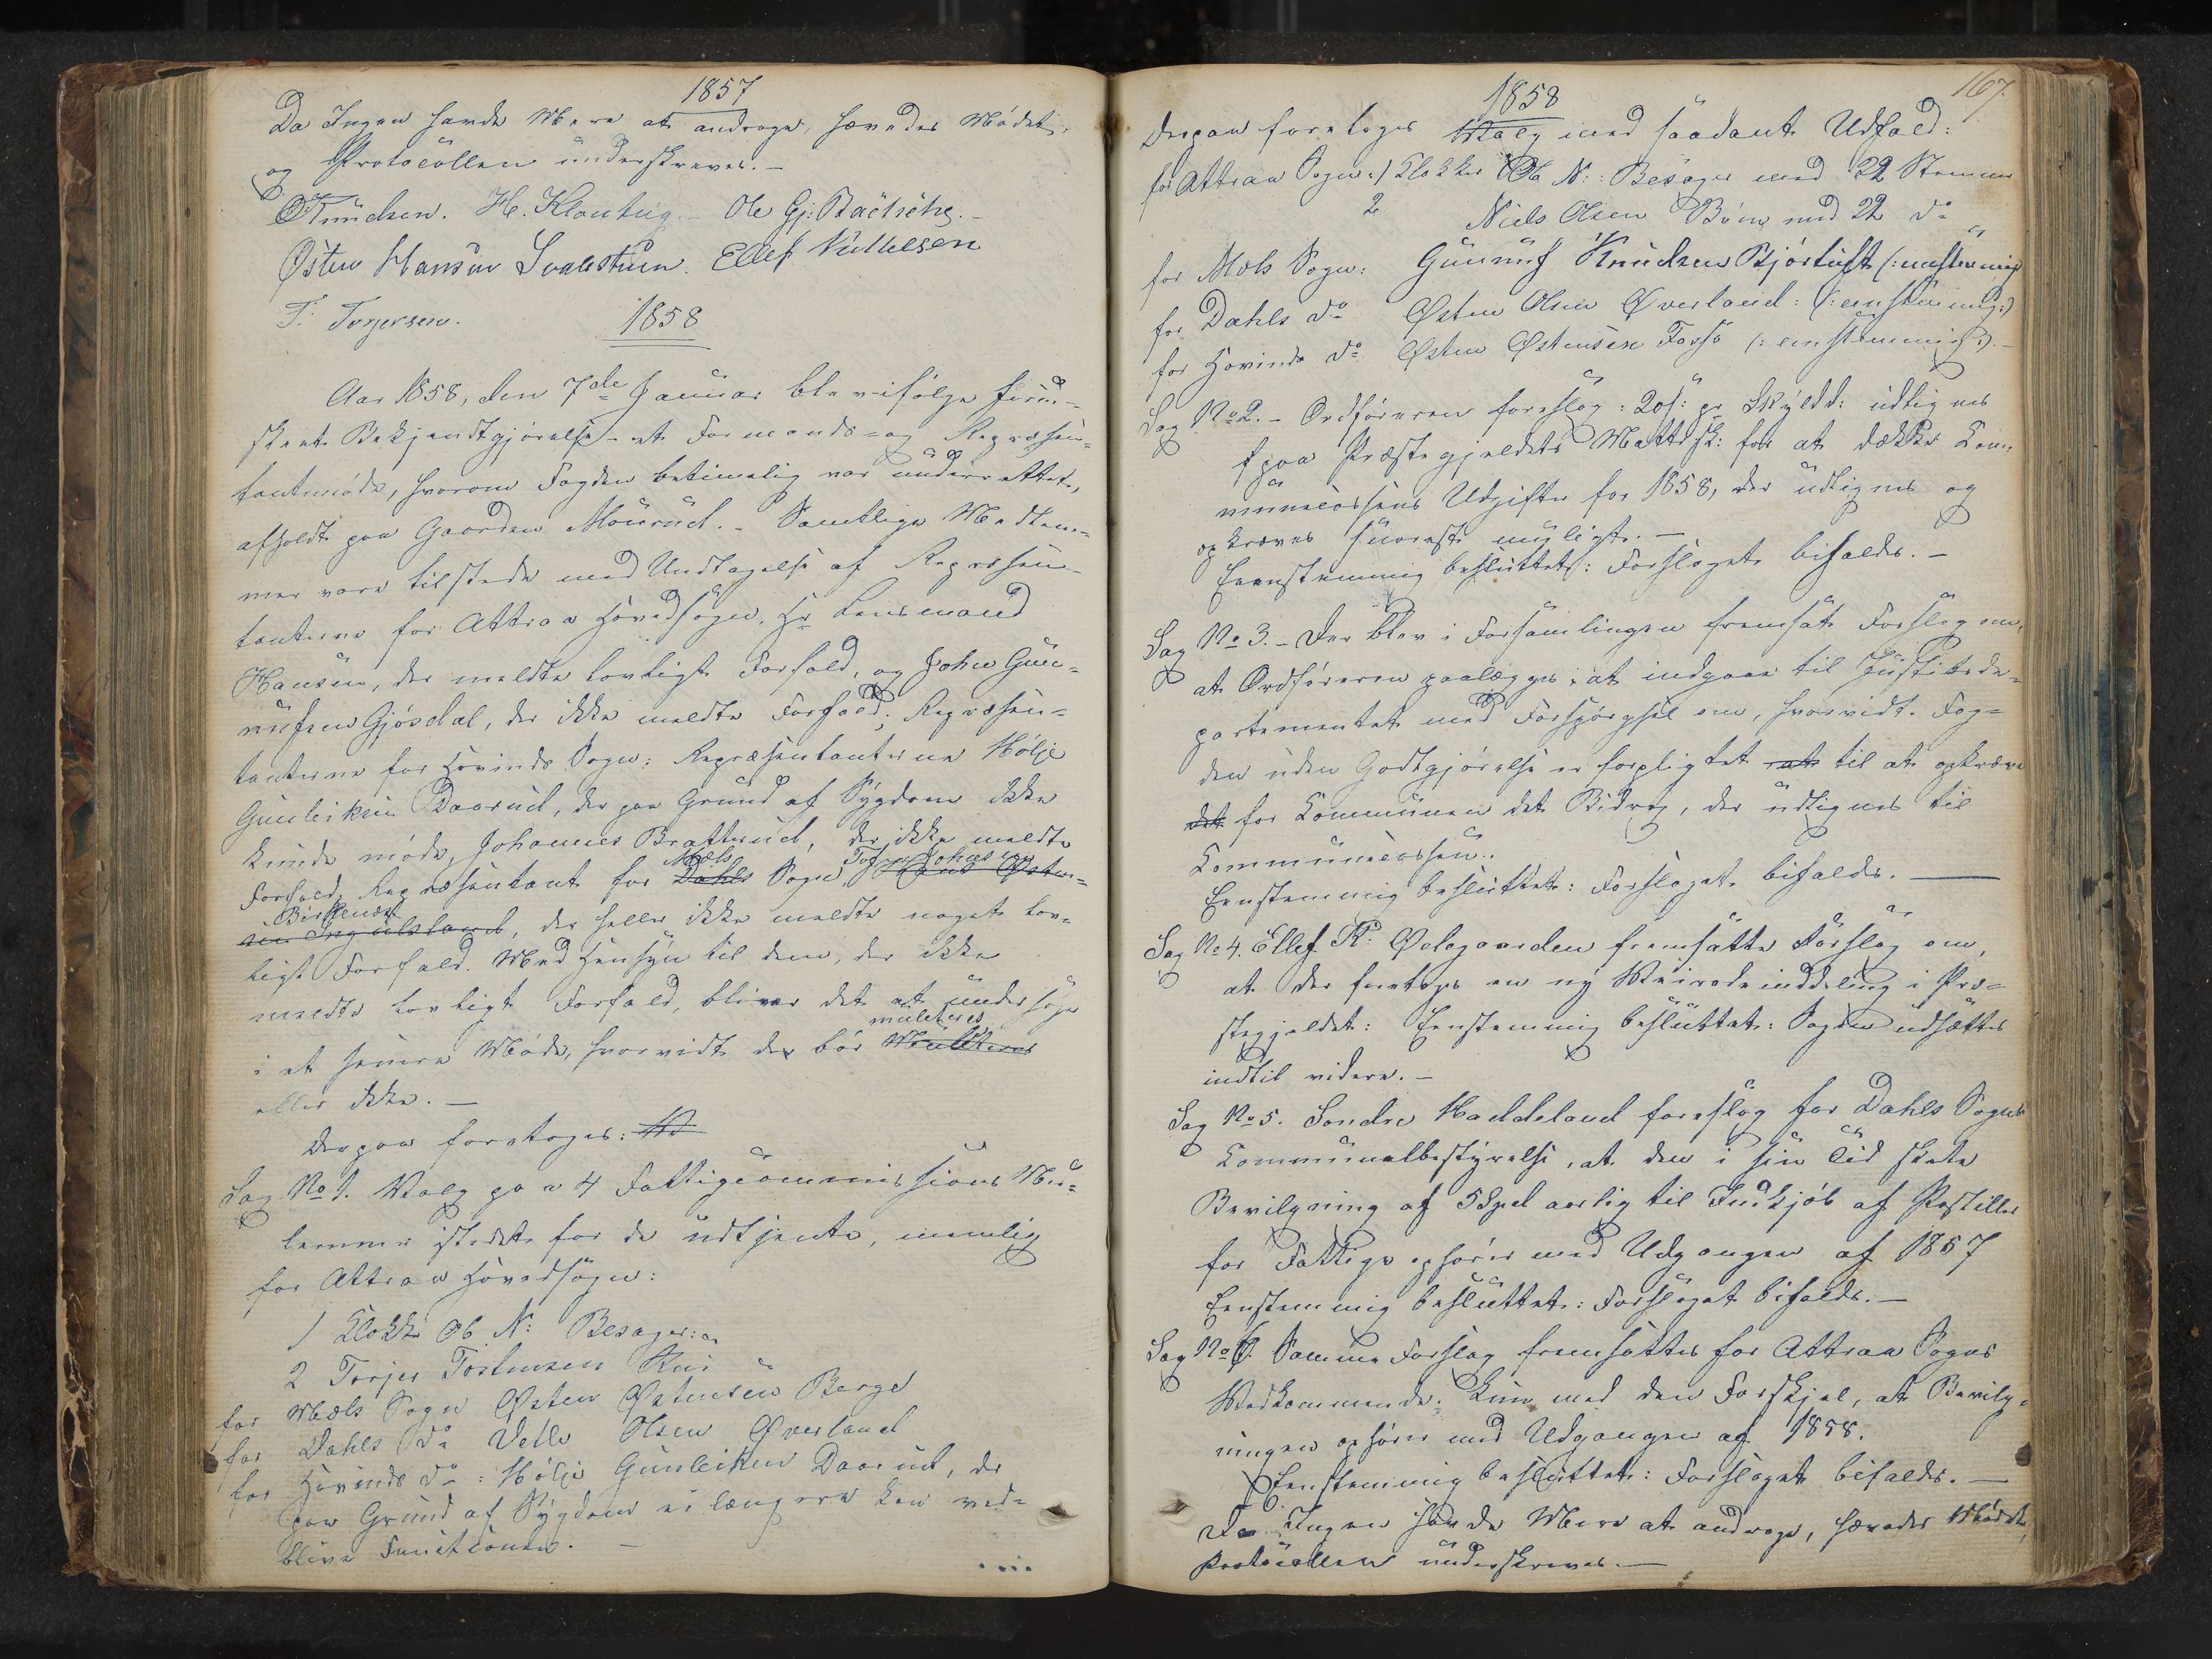 1857
Da Ingen havde Mere at andrage, hævedes Mödet,
og Protocollen underskreves. -
Knudsen. H. Kloutug. - Ole Gj:
Østen Hansen Svalestuen. Ellef
T. Torjersen.
1858
Aar 1858, den 7de Januar blev ifölge
skeet Bekjendtgjörelse - et Formands- og Repræsen-
tantmöde, hvorom Fogden betimelig var underrettet,
afholdt paa Gaarden Mourud. - Samtlige Medlem-
mer vare tilstede med Undtagelse af Repræsen-
tanterne for Attraa Hovedsogn, Hr Lensmand
Hansen, der meldte lovligt Forfald, og John Gun-
nufsen Gjösdal, der ikke meldte Forfald; Repræsen-
tanterne for Hovinds Sogn: Repræsentanterne Hölje
Gunleiksen Daarud, der paa Grund af Sygdom ikke
kunde möde, Johannes Bratterud, der ikke meldte
Mæls Johnsen
Forfald, Repræsentant for Dahls Sogn Hans Østen-
Birkenæs
sen Ingulsland, der heller ikke meldte noget lov-
ligt Forfald. Med Hensyn til dem, der ikke
meldte lovligt Forfald, bliver det at undersöge
mulcteres
i et senere Möde, hvorvidt de bör Mulkteres
eller ikke. -
Derpaa foretoges: No
Sag No 1. Valg paa 4 Fattigcommissions Med-
lemmer istedet for de udtjente, nemlig
for Attraa Hovedsogn:
1 Klokker Ob N: Besager: og
2 Torjer Torstensen
for Mæls Sogn Østen Østensen Berge
for Dahls do Vetle Olsen Øverland
for Hovinds do: Hölje Gunleiksen Daarud, der
paa Grund af Sygdom ei længere kan ved-
blive Functionen. -
1858
167.
Derpaa foretoges Valg med saadant Udfald:
for Attraa Sogn: 1 Klokker Ob N: Besager med 22 Stemmer
2 Niels Olsen Böen med 22 do
for Mæls Sogn: Gunnuf Knudsen Bjørtuft (: enstemmig
for Dahls do Østen Olsen Øverland: (: eenstemmig :)
for Hovinds do Østen Østensen Fosso (: eenstemmig :). -
Sag No 2. - Ordföreren foreslog: 20 s: pr Skyldd: udlignes
paa Præstegjeldets Matr: Sk: for at dække Com-
munecassens Udgifter for 1858, der udlignes og
opkræves snarest muligt. -
Eenstemmig besluttet: Forslaget bifaldes. -
Sag No 3. - Der blev i Forsamlingen fremsat Forslag om,
at Ordföreren paalægges: at indgaae til Justitsde-
partementet med Forspörgsel om, hvorvidt Fog-
den uden Godtgjörelse er forpligtet at til at opkræve
det for Communen det Bidrag, der udlignes til
Communecassen.
Eenstemmig besluttet: Forslaget bifaldes. -
Sag No 4. Ellef K: Ødegaarden fremsatte Forslag om,
at der foretages en ny Veirodeinddeling i Præ-
stegjeldet: Eenstemmig besluttet: Sagen udsættes
indtil videre. -
Sag No 5. Sondre Haddeland foreslog for Dahls Sogns
Communalbestyrelse, at den i sin Tid skete
Bevilgning af 5 Spd aarlig til Indkjöb af Postiller
for Fattige ophörer med Udgangen af 1857
Eenstemmig besluttet: Forslaget bifaldes. -
Sag No 6. Samme Forslag fremsattes for Attraa Sogns
Vedkommende. Kun med den Forskjel, at Bevilg-
ningen ophörer med Udgangen af 1858.
Eenstemmig besluttet: Forslaget bifaldes. -
Da Ingen havde Mere at andrage, hævedes Mödet,
Protocollen underskreves. -